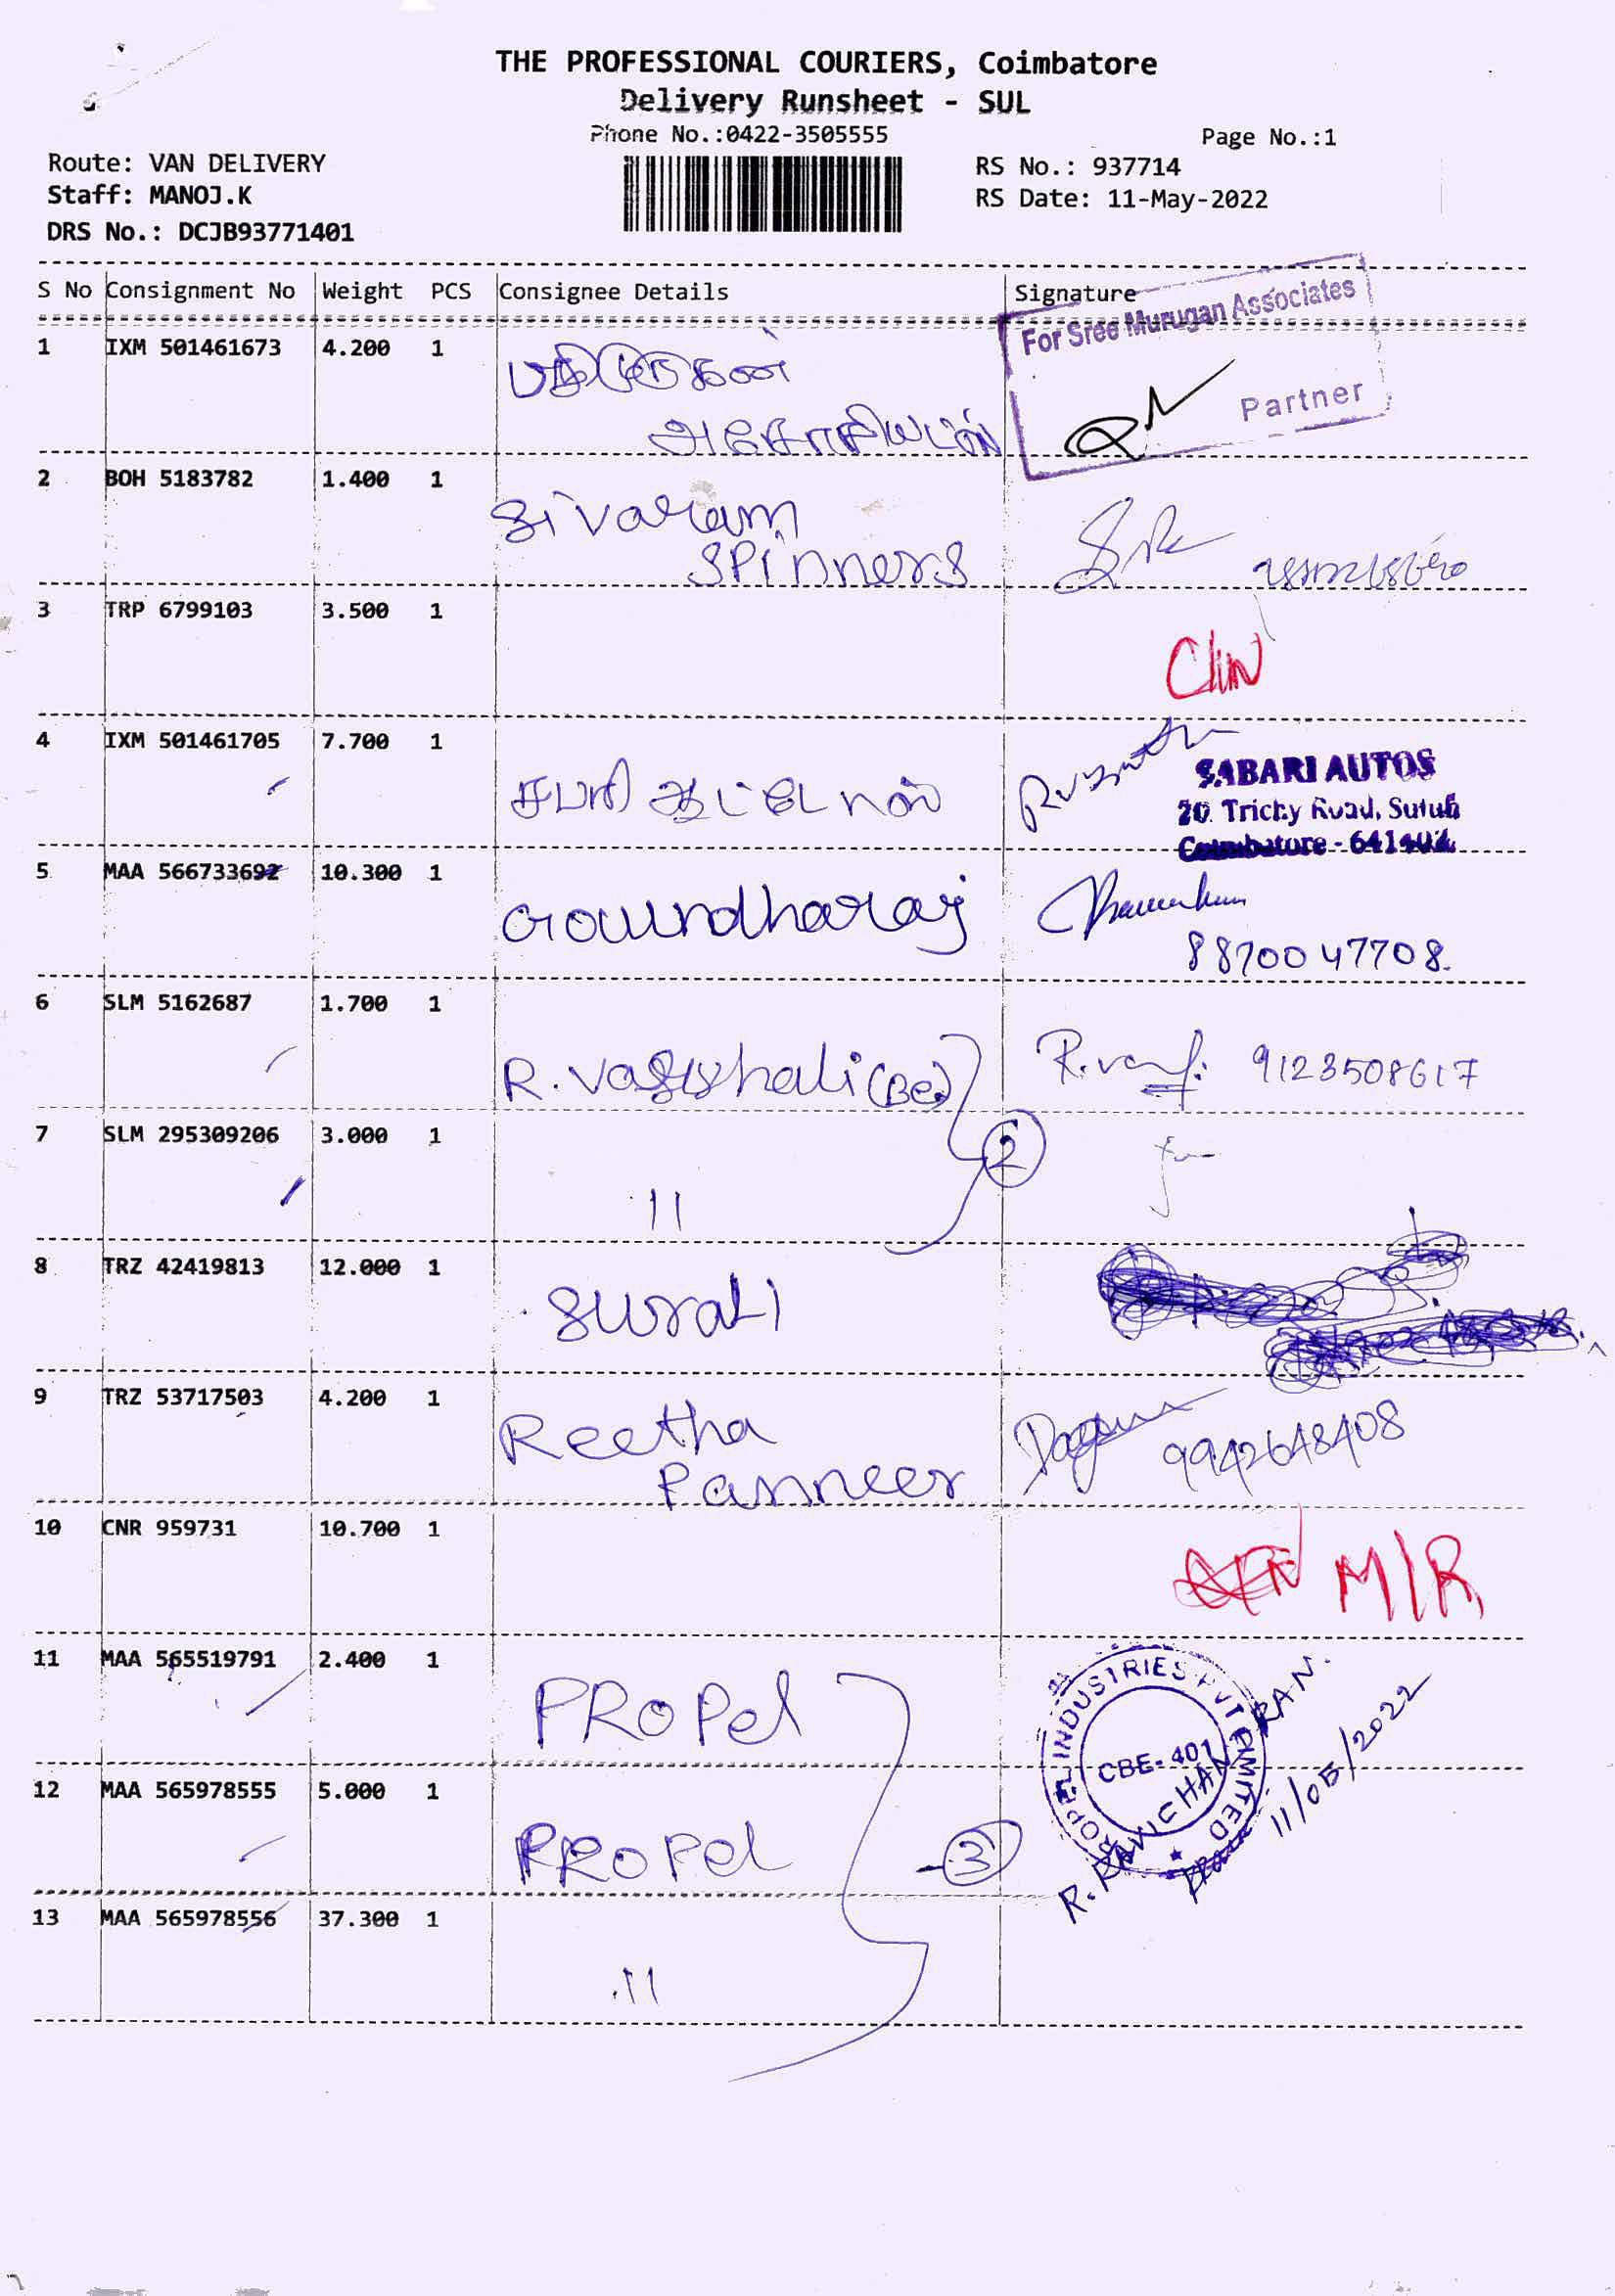 THE PROFESSIONAL COURIERS, Coimbatore
Delivery Runsheet - SUL
Phone No.:0422-3505555
Page No.:1
Route: VAN DELIVERY
RS No.: 937714
Staff: MANOJ.K
RS Date: 11-May-2022
DRS No.: DCJB93771401
S No Consignment No Weight PCS Consignee Details Signature
For Sree Murugan Associates
Partner
1 IXM 501461673 4.200 1
அசோசியட்ஸ்
2 BOH 5183782 1.400 1
Sivaram
SPinners
3 TRP 6799103 3.500 1
4 IXM 501461705 7.700 1
சபரி ஆட்டோஸ்
SABARI AUTOS
20. Trichy Road, Sulur
Coimbatore - 641402.
5 MAA 566733692 10.300 1
Goundharaj
88700 47708.
6 SLM 5162687 1.700 1
R. (Be)
9123508617
7 SLM 295309206 3.000 1
2
11
8 TRZ 42419813 12.000 1
9 TRZ 53717503 4.200 1
Reetha
Panneer
9942648408
10 CNR 959731 10.700 1
M/R
11 MAA 565519791 2.400 1
PROPel
PROPEL INDUSTRIES PVT LIMITED
CBE-401
R. RAVICHANDRAN.
11/05/2022
12 MAA 565978555 5.000 1
PROPel
3
13 MAA 565978556 37.300 1
11